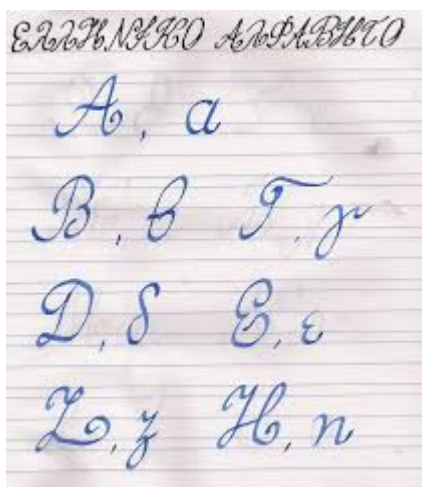 ΕΛΛΗΝΙΚΟ ΑΛΦΑΒΗΤΟ
Α, α
Β, β Γ, γ
Δ, δ Ε, ε
Ζ, ζ Η, η